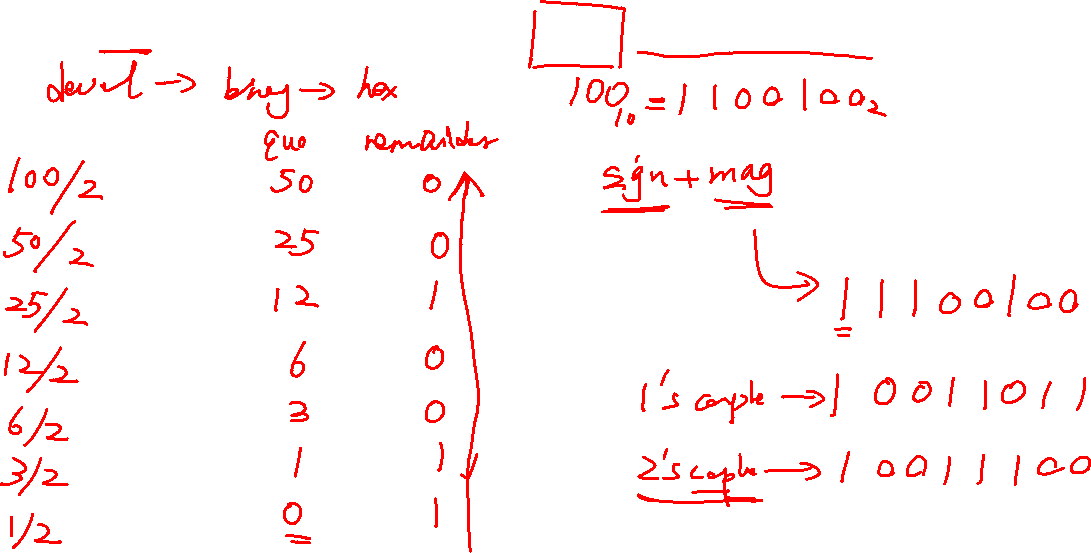 → binary → hex
quo remainder
100/2 50 0
50/2 25 0
25/2 12 1
12/2 6 0
6/2 3 0
3/2 1 1
1/2 0 1
100₁₀ = 1100100₂
sign + mag
→ 11100100
1's → 10011011
2's → 10011100